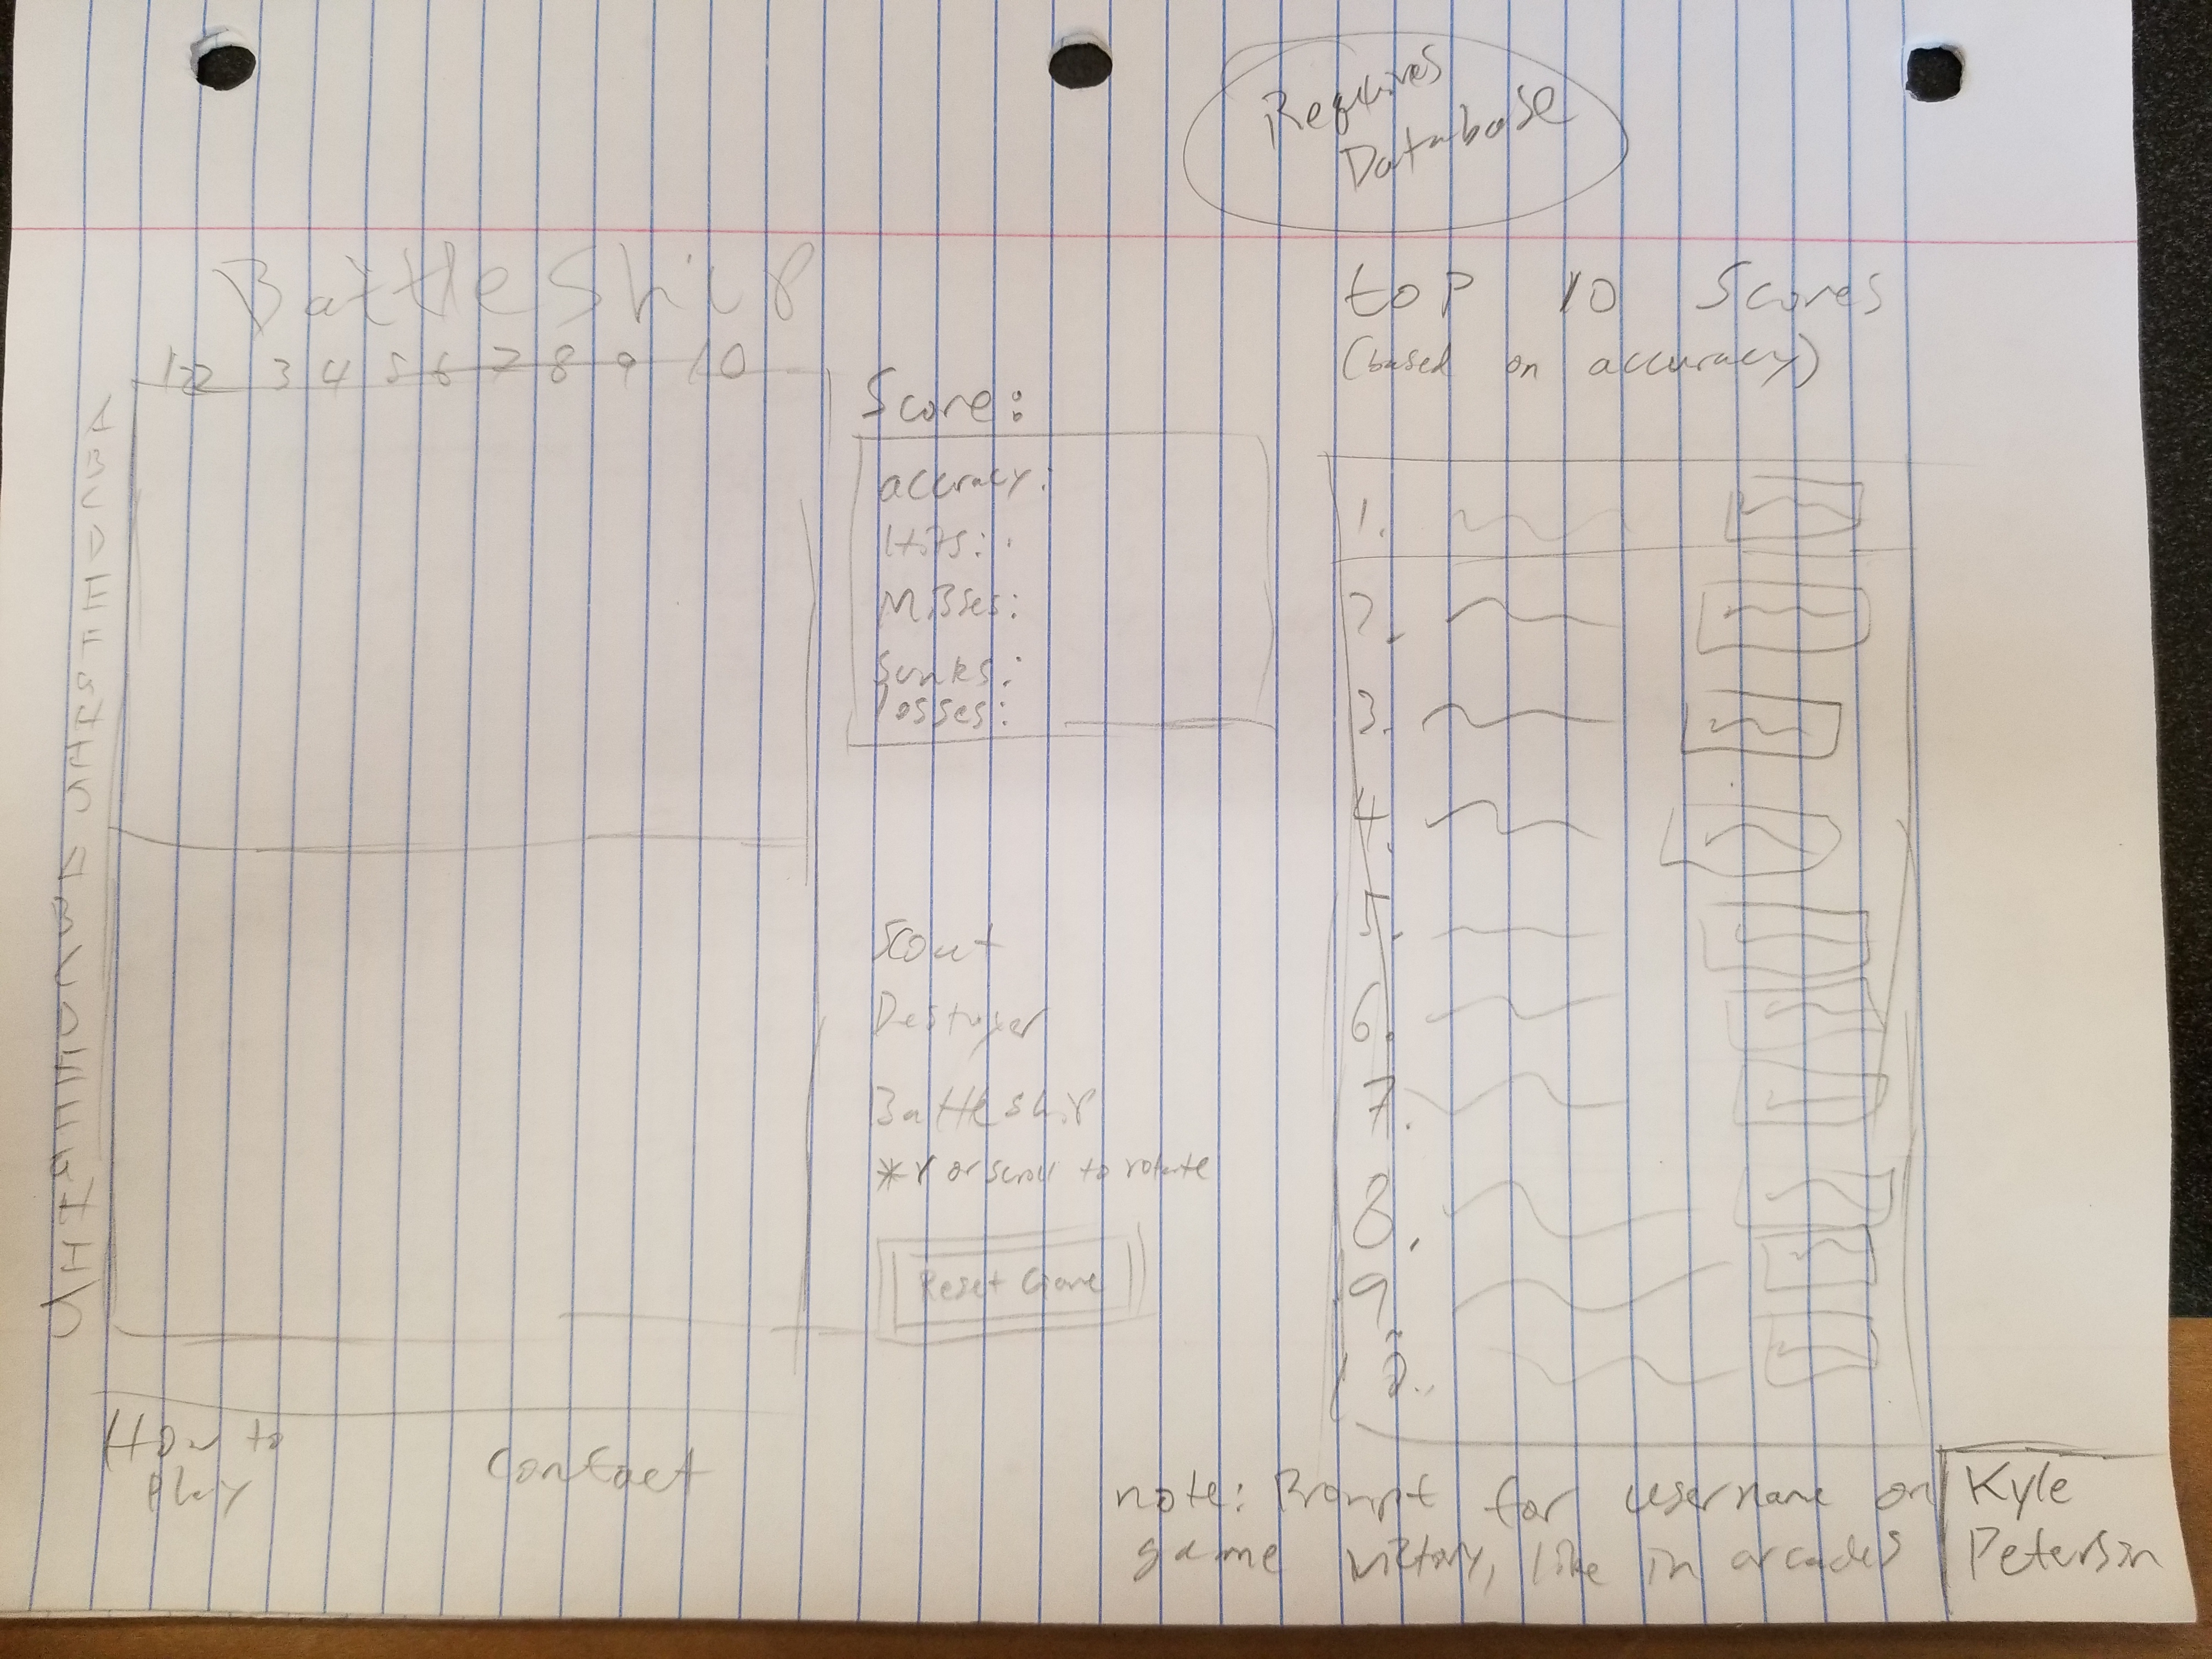 Requires
Database
BattleShip
1 2 3 4 5 6 7 8 9 10
A
B
C
D
E
F
G
H
I
J
A
B
C
D
E
F
G
H
I
J
Score:
accuracy:
Hits:
Misses:
Sunks:
losses:
Scout
Destroyer
Battleship
*r or scroll to rotate
Reset Game
top 10 Scores
(based on accuracy)
1.
2.
3.
4.
5.
6.
7.
8.
9.
10.
How to
play
Contact
note: Prompt for username on
game victory, like in arcades
Kyle
Peterson